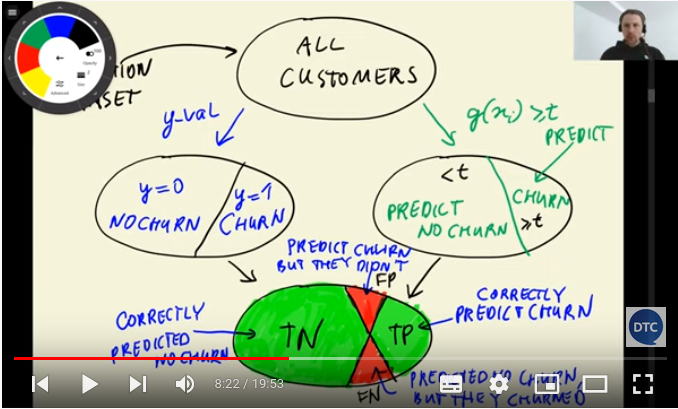 ALL
CUSTOMERS
y-val
g(xi) ≥ t
PREDICT
y=0
NO CHURN
y=1
CHURN
< t
PREDICT
NO CHURN
CHURN
≥ t
PREDICT CHURN
BUT THEY DIDN'T
FP
CORRECTLY
PREDICTED
NO CHURN
TN
TP
CORRECTLY
PREDICT CHURN
FN
PREDICTED NO CHURN,
BUT THEY CHURNED
DTC
8:22 / 19:53